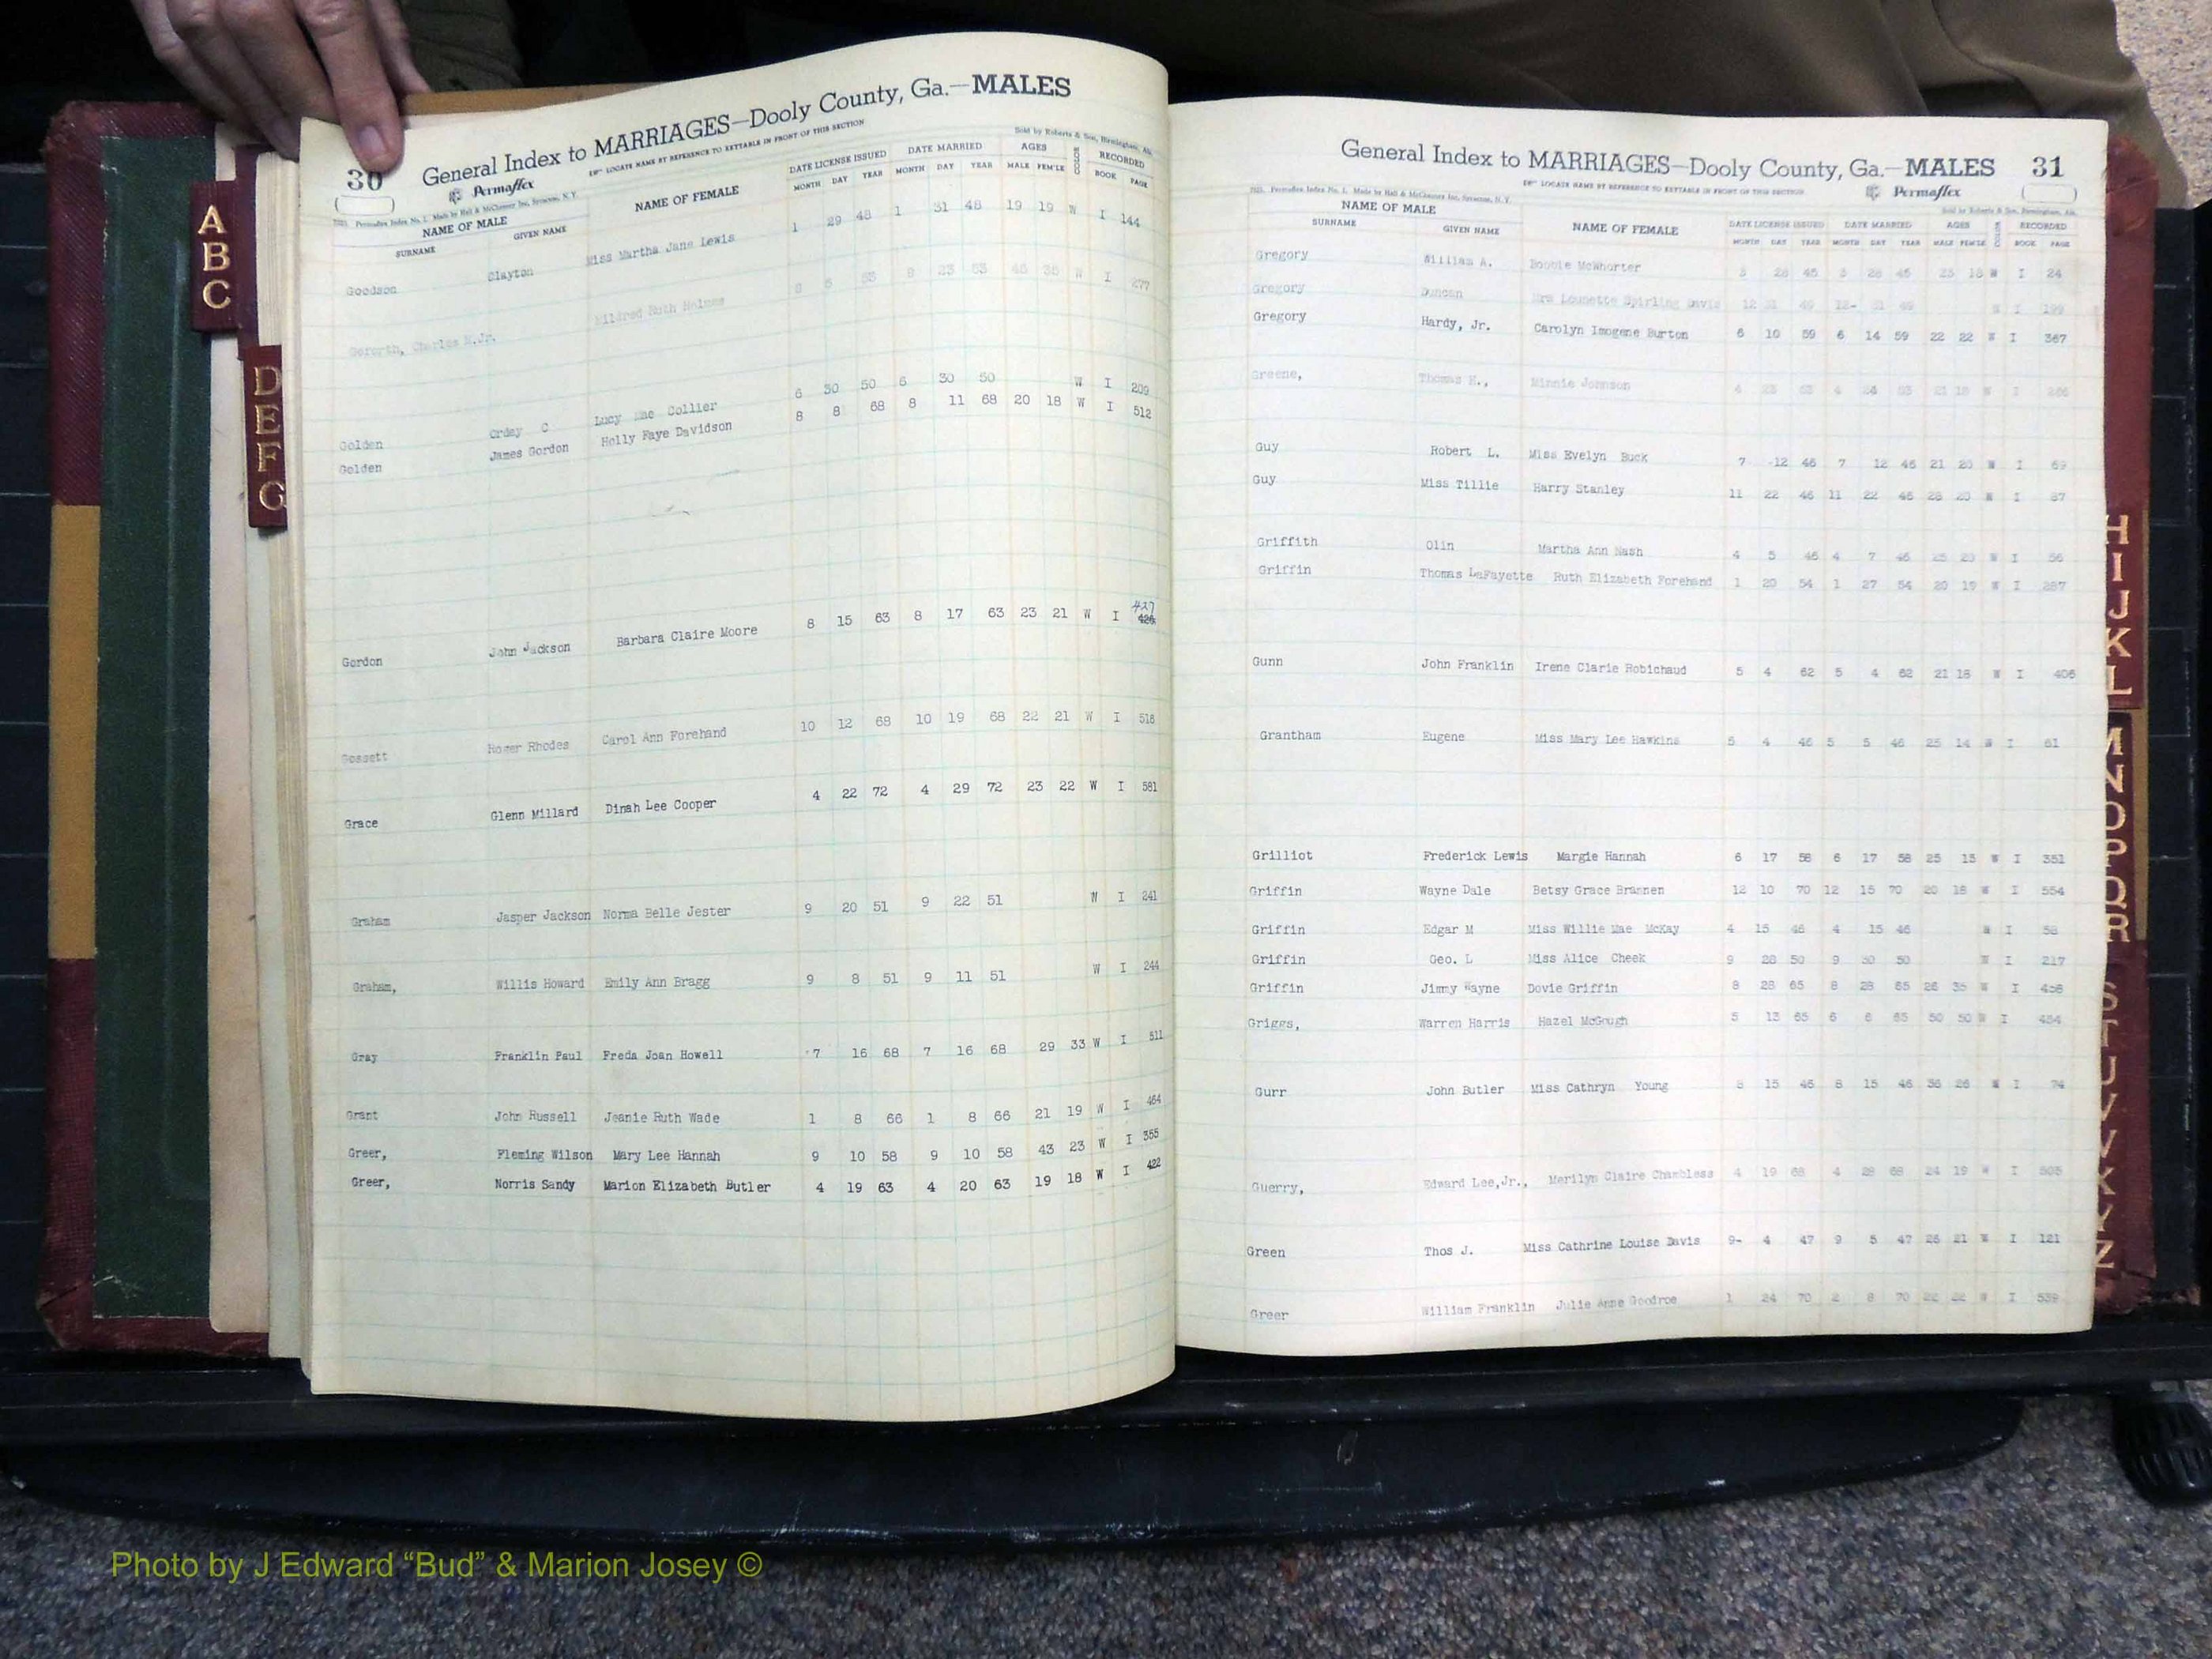 30
General Index to MARRIAGES—Dooly County, Ga.—MALES
Permaflex
LOCATE NAME BY REFERENCE TO KEYTABLE IN FRONT OF THIS SECTION
Sold by Roberts & Son, Birmingham, Ala.
NAME OF MALE
SURNAME GIVEN NAME NAME OF FEMALE
DATE LICENSE ISSUED DATE MARRIED AGES COLOR RECORDED
MONTH DAY YEAR MONTH DAY YEAR MALE FEM'LE BOOK PAGE
Goodson Clayton Miss Martha Jane Lewis 1 29 48 1 31 48 19 19 W I 144
Charles N.Jr. Mildred Ruth Holmes 53 8 23 53 W I 277
Golden Orday C Lucy Mae Collier 6 30 50 6 30 50 W I 209
Golden James Gordon Holly Faye Davidson 8 8 68 8 11 68 20 18 W I 512
Gordon John Jackson Barbara Claire Moore 8 15 63 8 17 63 23 21 W I 427
Gossett Homer Rhodes Carol Ann Forehand 10 12 68 10 19 68 22 21 W I 518
Grace Glenn Millard Dinah Lee Cooper 4 22 72 4 29 72 23 22 W I 581
Graham Jasper Jackson Norma Belle Jester 9 20 51 9 22 51 W I 241
Graham, Willis Howard Emily Ann Bragg 9 8 51 9 11 51 W I 244
Gray Franklin Paul Freda Joan Howell 7 16 68 7 16 68 29 33 W I 511
Grant John Russell Jeanie Ruth Wade 1 8 66 1 8 66 21 19 W I 464
Greer, Fleming Wilson Mary Lee Hannah 9 10 58 9 10 58 43 23 W I 355
Greer, Norris Sandy Marion Elizabeth Butler 4 19 63 4 20 63 19 18 W I 422
General Index to MARRIAGES—Dooly County, Ga.—MALES 31
LOCATE NAME BY REFERENCE TO KEYTABLE IN FRONT OF THIS SECTION
Permaflex
NAME OF MALE
SURNAME GIVEN NAME NAME OF FEMALE
DATE LICENSE ISSUED DATE MARRIED AGES COLOR RECORDED
MONTH DAY YEAR MONTH DAY YEAR MALE FEM'LE BOOK PAGE
Gregory William A. Bobbie McWhorter 3 28 45 3 28 45 18 W I 24
Gregory Duncan Mrs Lounette Spirling Davis 12 31 49 12- 31 49 W I 199
Gregory Hardy, Jr. Carolyn Imogene Burton 6 10 59 6 14 59 22 22 W I 367
Greene, Thomas H., Minnie Johnson 4 23 53 4 24 53 21 18 W I
Guy Robert L. Miss Evelyn Buck 7 -12 46 7 12 46 21 20 W I 69
Guy Miss Tillie Harry Stanley 11 22 46 11 22 46 W I 87
Griffith Olin Martha Ann Nash 4 5 46 4 7 46 W I 56
Griffin Thomas LaFayette Ruth Elizabeth Forehand 1 20 54 1 27 54 20 19 W I 287
Gunn John Franklin Irene Clarie Robichaud 5 4 62 5 4 62 21 18 W I 406
Grantham Eugene Miss Mary Lee Hawkins 5 4 46 5 5 46 25 14 W I 61
Grilliot Frederick Lewis Margie Hannah 6 17 58 6 17 58 25 15 W I 351
Griffin Wayne Dale Betsy Grace Brannen 12 10 70 12 15 70 20 18 W I 554
Griffin Edgar M Miss Willie Mae McKay 4 15 46 4 15 46 W I 58
Griffin Geo. L Miss Alice Cheek 9 28 50 9 30 50 W I 217
Griffin Jimmy Wayne Dovie Griffin 8 28 65 8 28 65 W I
Griggs, Warren Harris Hazel McGough 5 13 65 6 6 65 50 50 W I 454
Gurr John Butler Miss Cathryn Young 8 15 46 8 15 46 W I 74
Guerry, Edward Lee,Jr., Marilyn Claire Chambless 4 19 68 4 28 68 24 19 W I 505
Green Thos J. Miss Cathrine Louise Davis 9- 4 47 9 5 47 21 W I 121
Greer William Franklin Julie Anne Goodroe 1 24 70 2 8 70 22 22 W I 539
A
B
C
D
E
F
G
H
I
J
K
L
M
N
O
P
Q
R
S
T
U
V
W
X
Y
Z
Photo by J Edward “Bud” & Marion Josey ©